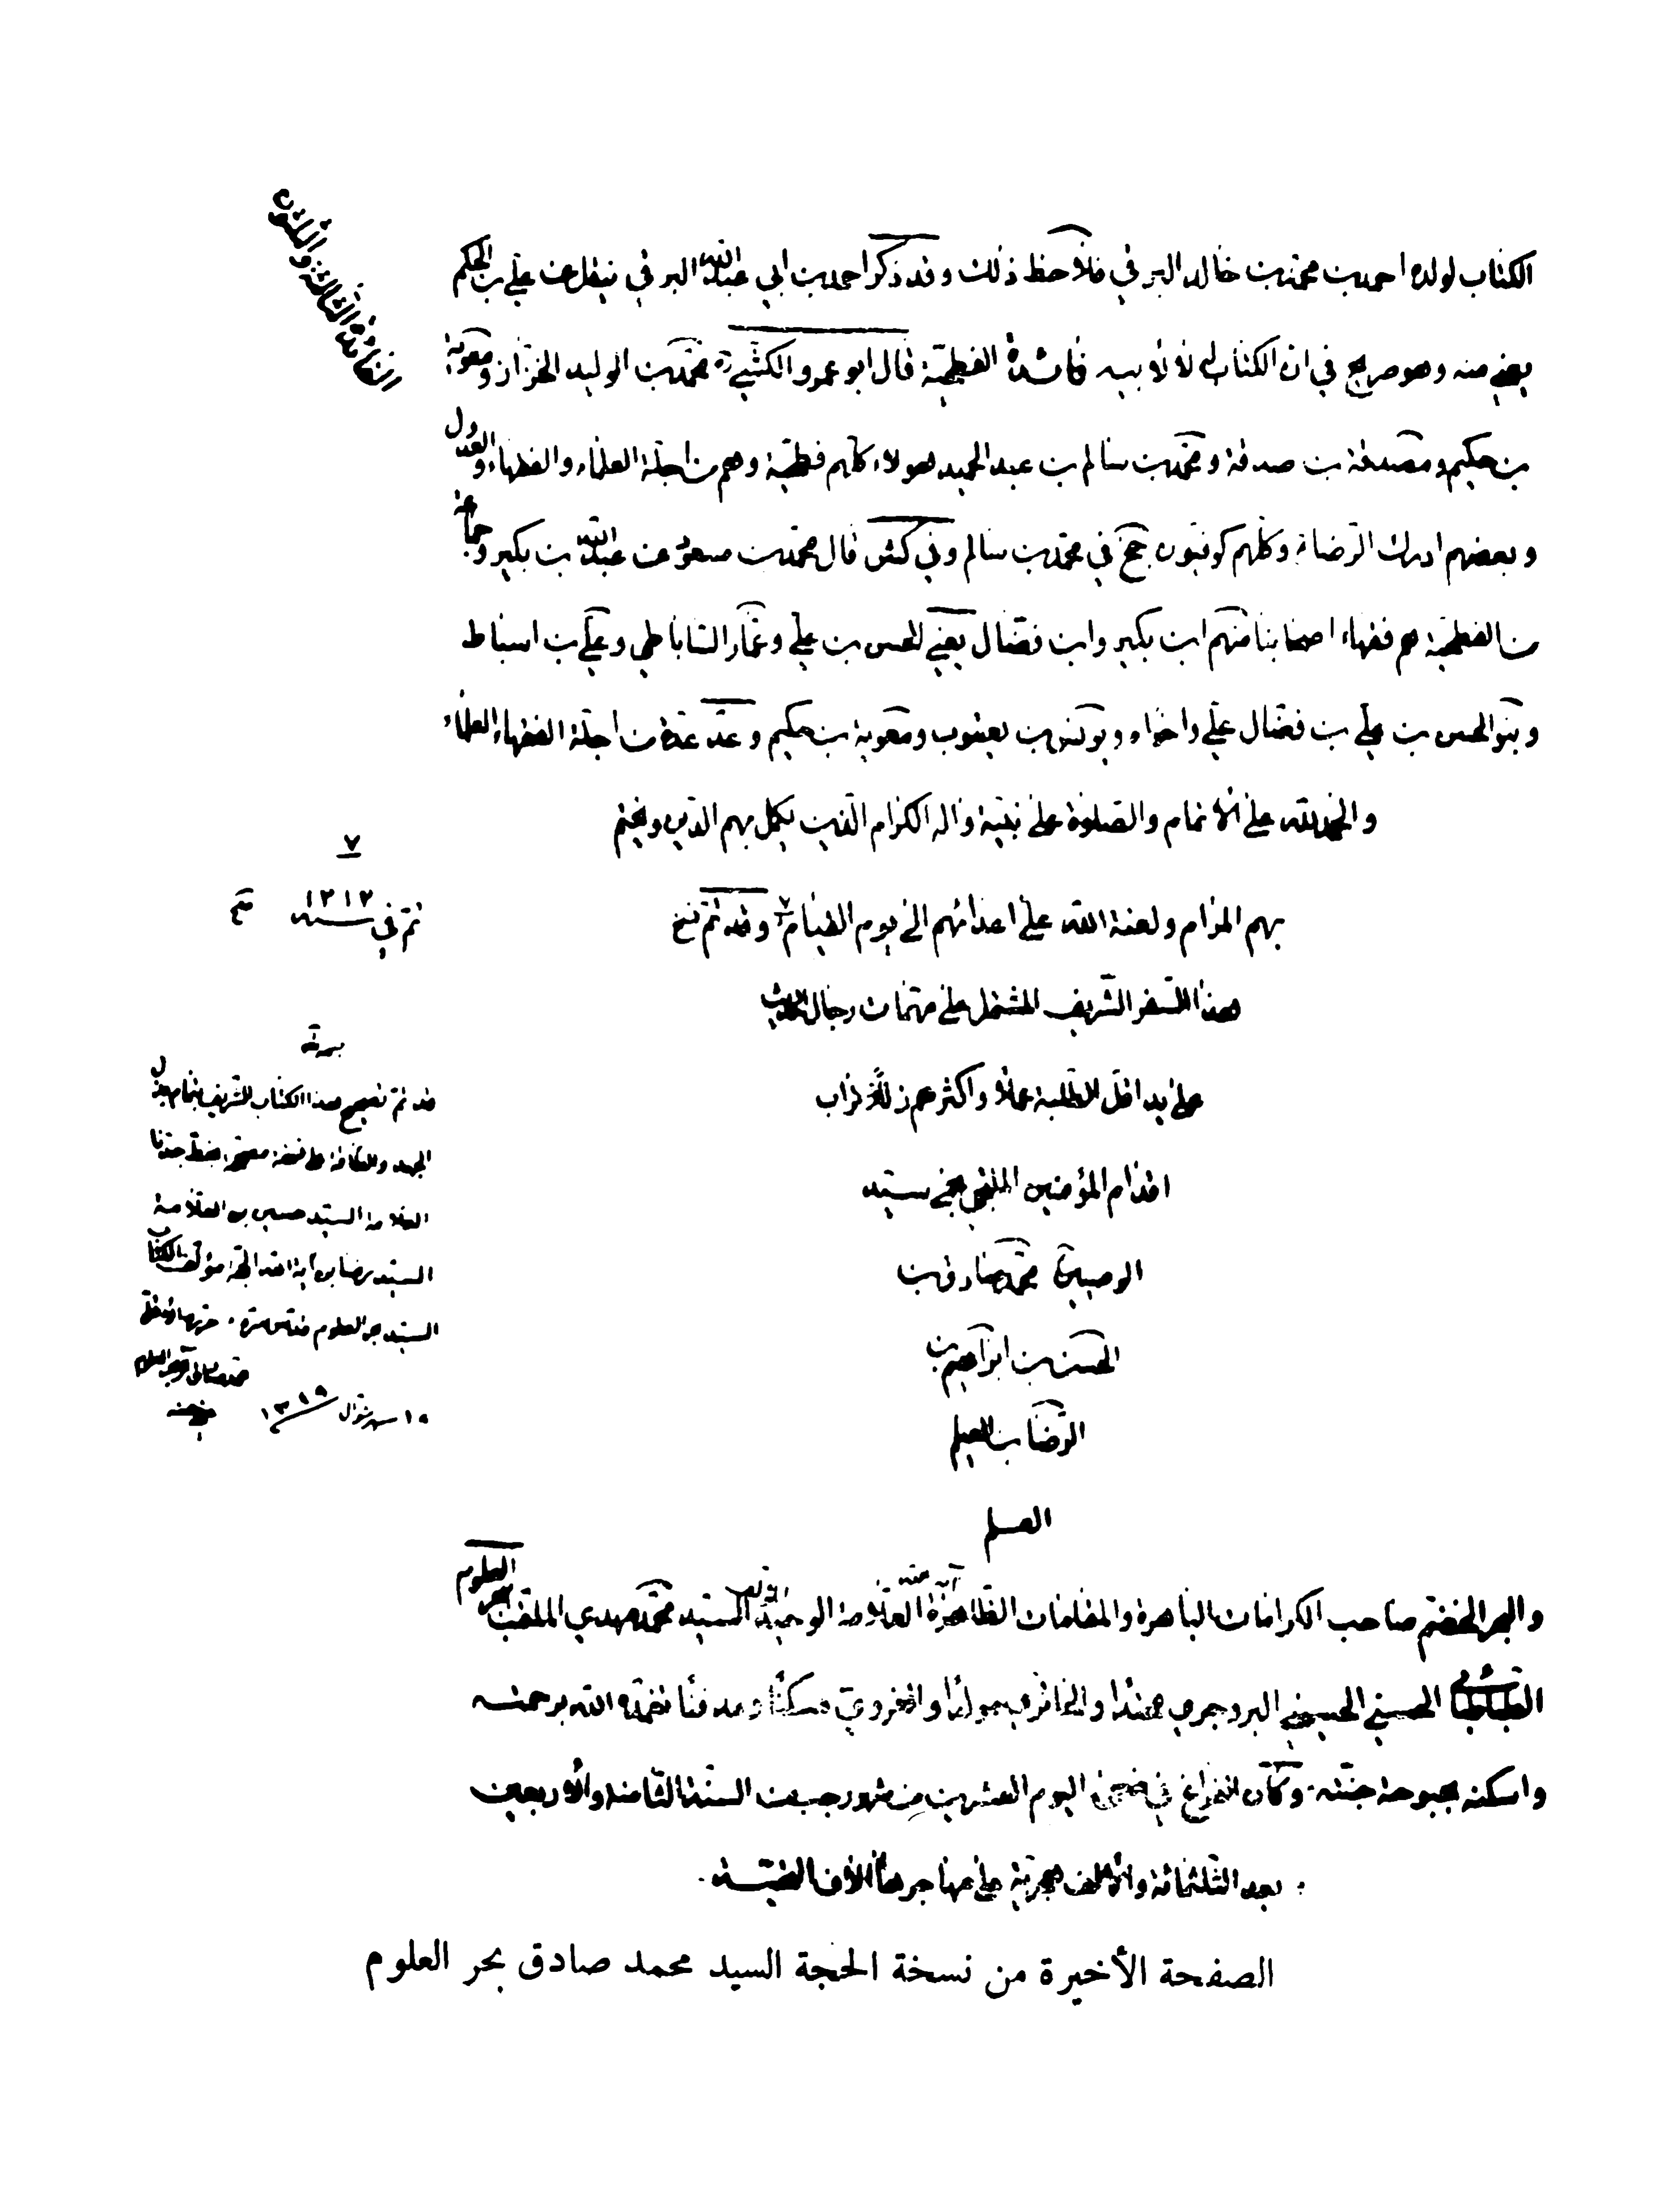 الكتاب لولده احمد بن محمد بن خالد البرقي فلاحظ ذلك وقد ذكر احمد بن ابي عبد الله البرقي فينقل عن علي بن الحكم
منه وهو صريح في ان الكتاب له لا لأبيه فائدة الفطحية قال ابو عمرو الكشي ره محمد بن الوليد الخزاز ومعوية
بن حكيم ومصدق بن صدقة ومحمد بن سالم بن عبد الحميد هولاء كلهم فطحية وهم من اجلة العلماء والفقهاء والعدول
وبعضهم ادرك الرضا ء وكلهم كوفيون جخ في محمد بن سالم وفي كش قال محمد بن مسعود عن عبد الله بن بكير وجماعة
من الفطحية هم فقهاء اصحابنا منهم ابن بكير وابن فضال يعني الحسن بن علي وعمار الساباطي وعلي بن اسباط
وبنو الحسن بن علي بن فضال علي واخواه ويونس بن يعقوب ومعوية بن حكيم وعد عدة من اجلة الفقهاء العلماء
والحمد لله على الاتمام والصلوة على نبيه واله الكرام الذين يكمل بهم الدين ويختم
بهم المرام ولعنة الله على اعدائهم الى يوم القيام وقد تم نسخ
هذا السفر الشريف المشتمل على مهمات رجال الحديث
على يد اقل الطلبة عملا واكثرهم زللا تراب
اقدام المؤمنين الملتجي سيد
الوصيين محمد صادق بن
الحسن بن ابراهيم بن
الرضا بن العيلم
العلم
والبحر الخضم صاحب الكرامات الباهرة والمقامات الظاهرة آية الله العلامة الوحيد السيد محمد مهدي الملقب ببحر العلوم
الطباطبائي الحسني الحسيني البروجردي محتدا والحائري مولدا والغروي مسكنا ومدفنا تغمده الله برحمته
واسكنه بحبوحة جنته وكان الفراغ في ضحى اليوم العشرين من شهر رجب من السنة الثامنة والاربعين
بعد الثلثمائة والالف هجرية على مهاجرها الاف التحية
٧
تم في سنة ١٣١٣
قد تم تصحيح هذا الكتاب الشريف بتمامه ببذل
الجهد والطاقة على نسخة مصححة بخط جدنا
العلامة السيد حسين بن العلامة
السيد رضا بن آية الله الحجة مؤلف الكتاب
السيد بحر العلوم قدس سره حرره الاقل
محمد صادق آل بحر العلوم
١٥ شهر شوال
الصفحة الأخيرة من نسخة الحجة السيد محمد صادق بحر العلوم